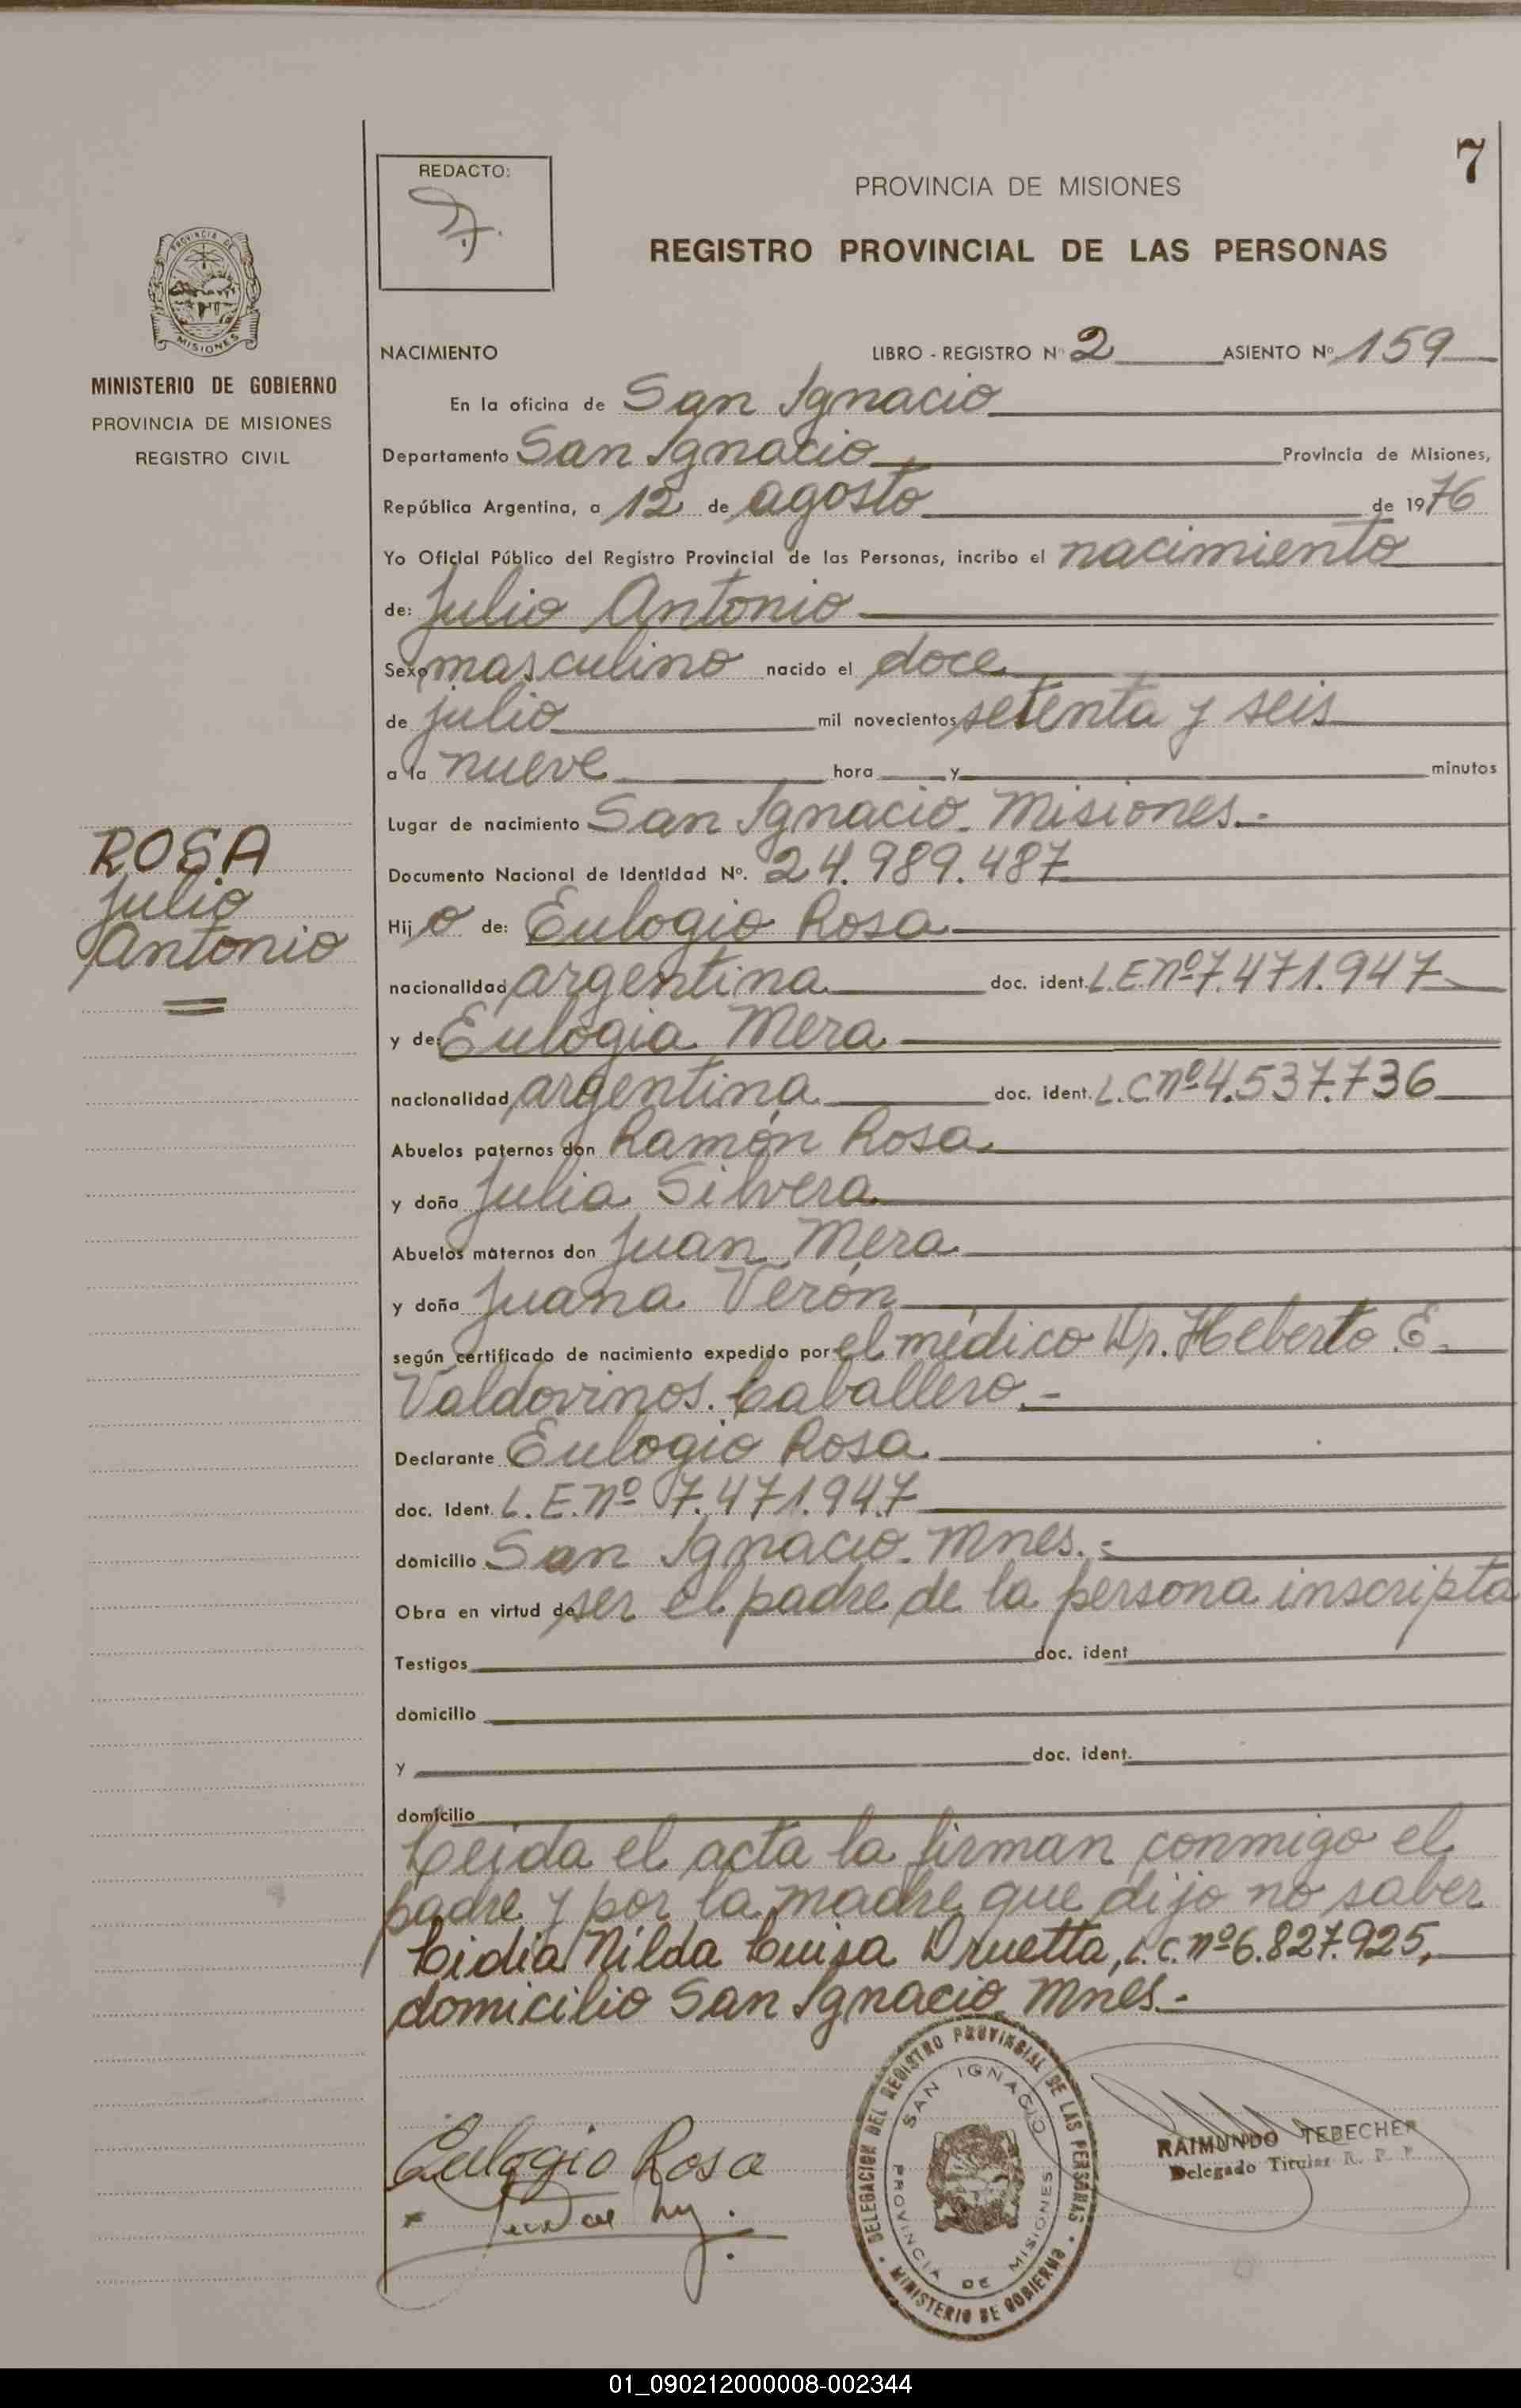 7
REDACTO:
PROVINCIA DE MISIONES
REGISTRO PROVINCIAL DE LAS PERSONAS
PROVINCIA DE
MISIONES
MINISTERIO DE GOBIERNO
PROVINCIA DE MISIONES
REGISTRO CIVIL
ROSA
Julio
Antonio
NACIMIENTO LIBRO - REGISTRO Nº 2 ASIENTO Nº 159
En la oficina de San Ignacio
Departamento San Ignacio Provincia de Misiones,
República Argentina, a 12 de agosto de 1976
Yo Oficial Público del Registro Provincial de las Personas, incribo el nacimiento
de: Julio Antonio
Sexo masculino nacido el doce
de julio mil novecientos setenta y seis
a la nueve hora y minutos
Lugar de nacimiento San Ignacio. Misiones.-
Documento Nacional de Identidad Nº. 24.989.487
Hij o de: Eulogio Rosa
nacionalidad argentina doc. ident. L.E.nº7.471.947
y de: Eulogia Mera
nacionalidad argentina doc. ident. L.C.nº4.537.736
Abuelos paternos don Ramón Rosa
y doña Julia Silvera
Abuelos maternos don Juan Mera
y doña Juana Verón
según certificado de nacimiento expedido por el médico Dr. Heberto E.
Valdovinos. Caballero.-
Declarante Eulogio Rosa
doc. Ident. L.E.nº 7.471.947
domicilio San Ignacio. Mnes.-
Obra en virtud de ser el padre de la persona inscripta
Testigos doc. ident
domicilio
y doc. ident.
domicilio
Leida el acta la firman conmigo el
padre y por la madre que dijo no saber
Lidia Nilda Luisa Druetta, L.C.nº6.827.925,
domicilio San Ignacio. Mnes.-
Eulogio Rosa
DELEGACION DEL REGISTRO PROVINCIAL DE LAS PERSONAS
MINISTERIO DE GOBIERNO
SAN IGNACIO
PROVINCIA DE MISIONES
RAIMUNDO TEBECHER
Delegado Titular R. P. P.
01_090212000008-002344